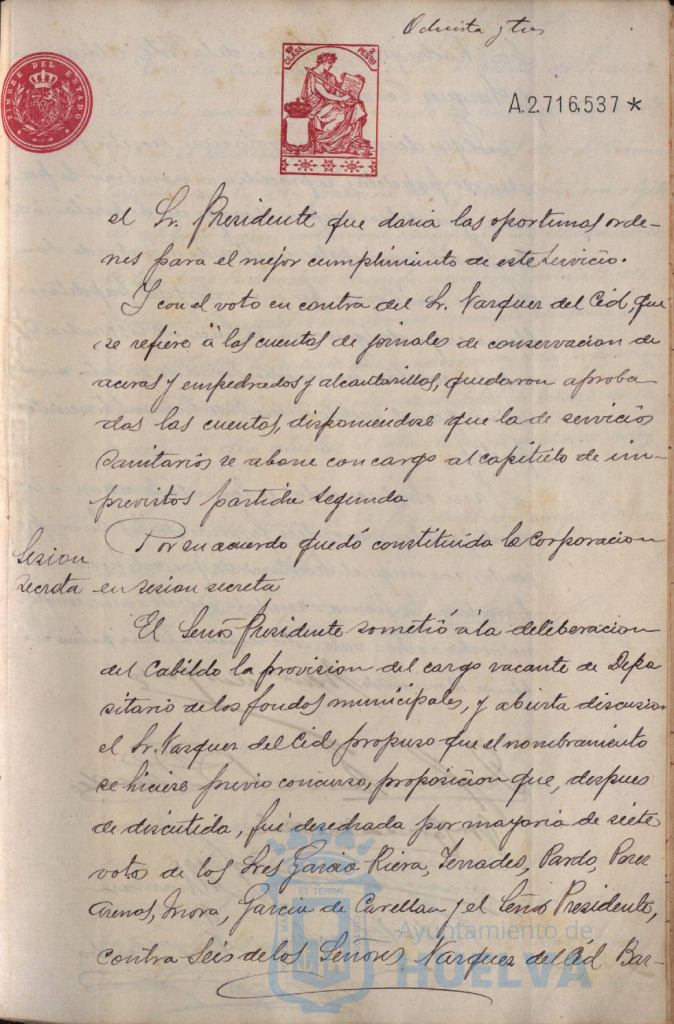 Ochenta y tres
TIMBRE DEL ESTADO
CLASE
PESETAS
A.2.716.537*
el Sr. Presidente que daria las oportunas orde-
nes para el mejor cumplimiento de este servicio.
Y con el voto en contra del Sr. Vazquez del Cid, que
se refiere á las cuentas de jornales de conservacion de
aceras y empedrados y alcantarillas, quedaron aproba
das las cuentas, disponiéndose que la de servicios
Sanitarios se abone con cargo al capitulo de im-
previstos partida segunda
Por su acuerdo quedó constituida la Corporacion
Sesion
secreta
en sesion secreta
El Señor Presidente sometió á la deliberacion
del Cabildo la provision del cargo vacante de Depo
sitario de los fondos municipales, y abierta discusion
el Sr. Vazquez del Cid propuso que el nombramiento
se hiciese previo concurso, proposicion que, despues
de discutida, fué desechada por mayoria de siete
voto de los Sres Garcia Riera, Terrades, Pardo, Perez
Arenas, Mora, Garcia de Cavellan y el Señor Presidente,
contra Seis de los Señores Vazquez del Cid Bar-
ET TERRAE
Ayuntamiento de
HUELVA